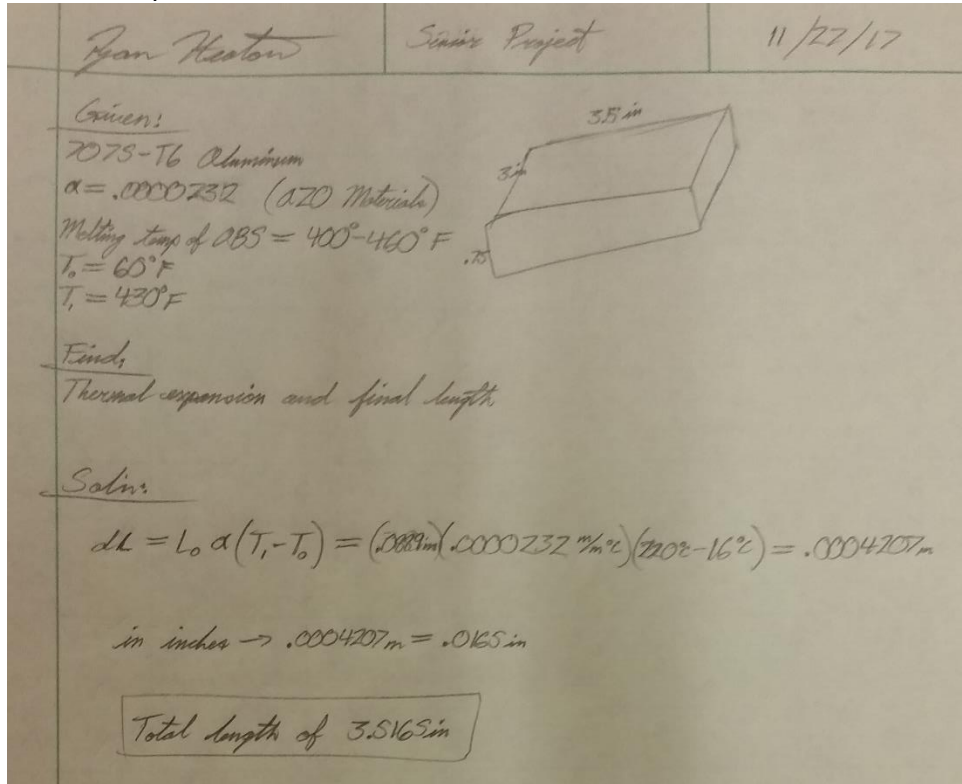 Ryan Heaton
Senior Project
11/27/17
Given:
7075-T6 Aluminum
α = .0000232 (AZO Materials)
Melting temp of ABS = 400°-460°F
T₀ = 60°F
T₁ = 430°F
3.5 in
3in
.75
Find;
Thermal expansion and final length
Soln:
dL = L₀ α(T₁-T₀) = (.0889m)(.0000232 m/m°C)(220°C-16°C) = .0004207m
in inches → .0004207m = .0165in
Total length of 3.5165in